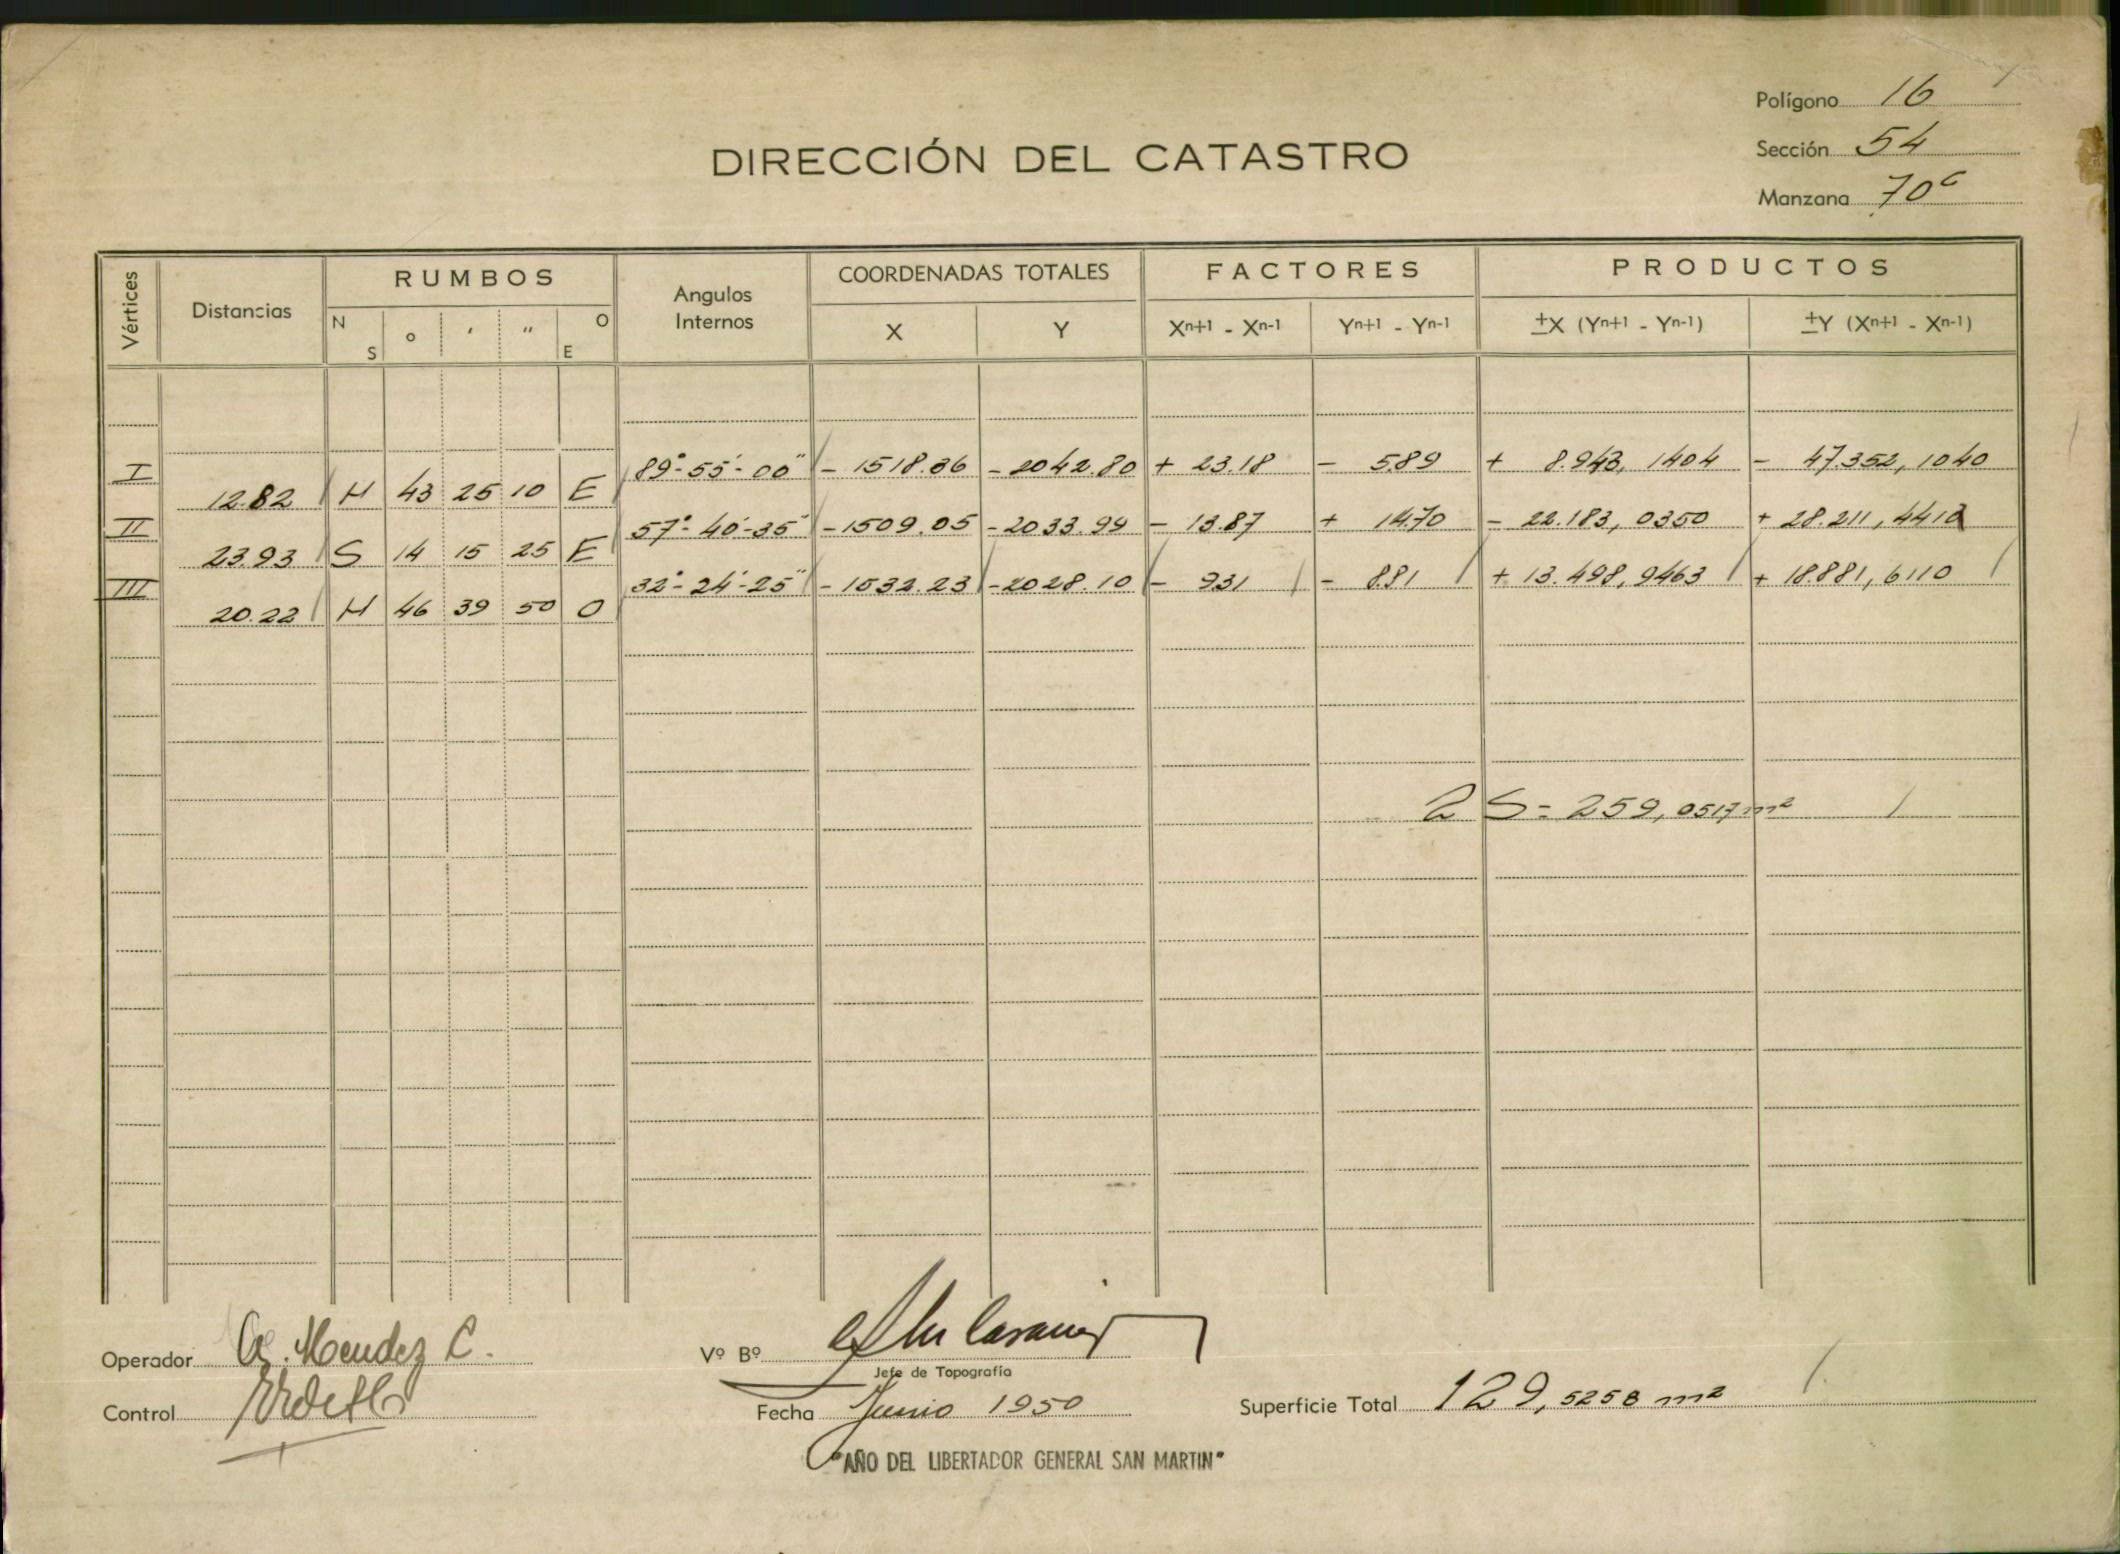 Polígono 16
DIRECCIÓN DEL CATASTRO
Sección 54
Manzana 70c
Vértices Distancias RUMBOS Angulos Internos COORDENADAS TOTALES FACTORES PRODUCTOS
N S ° ' " O E X Y Xn+1 - Xn-1 Yn+1 - Yn-1 ±X (Yn+1 - Yn-1) ±Y (Xn+1 - Xn-1)
I 89°-55'-00" - 1518.36 - 2042.80 + 23.18 - 5.89 + 8.943,1404 - 47.352,1040
12.82 N 43 25 10 E
II 57°-40'-35" - 1509.05 - 2033.99 - 13.87 + 14.70 - 22.183,0350 + 28.211,4413
23.93 S 14 15 25 E
III 32°-24'-25" - 1532.23 - 2028.10 - 9.31 - 8.81 + 13.498,9463 + 18.881,6110
20.22 N 46 39 50 O
2 S = 259,0517 m²
Operador Mendez C.
Vº Bº
Jefe de Topografía
Control
Fecha Junio 1950
Superficie Total 129,5258 m²
"AÑO DEL LIBERTADOR GENERAL SAN MARTIN"